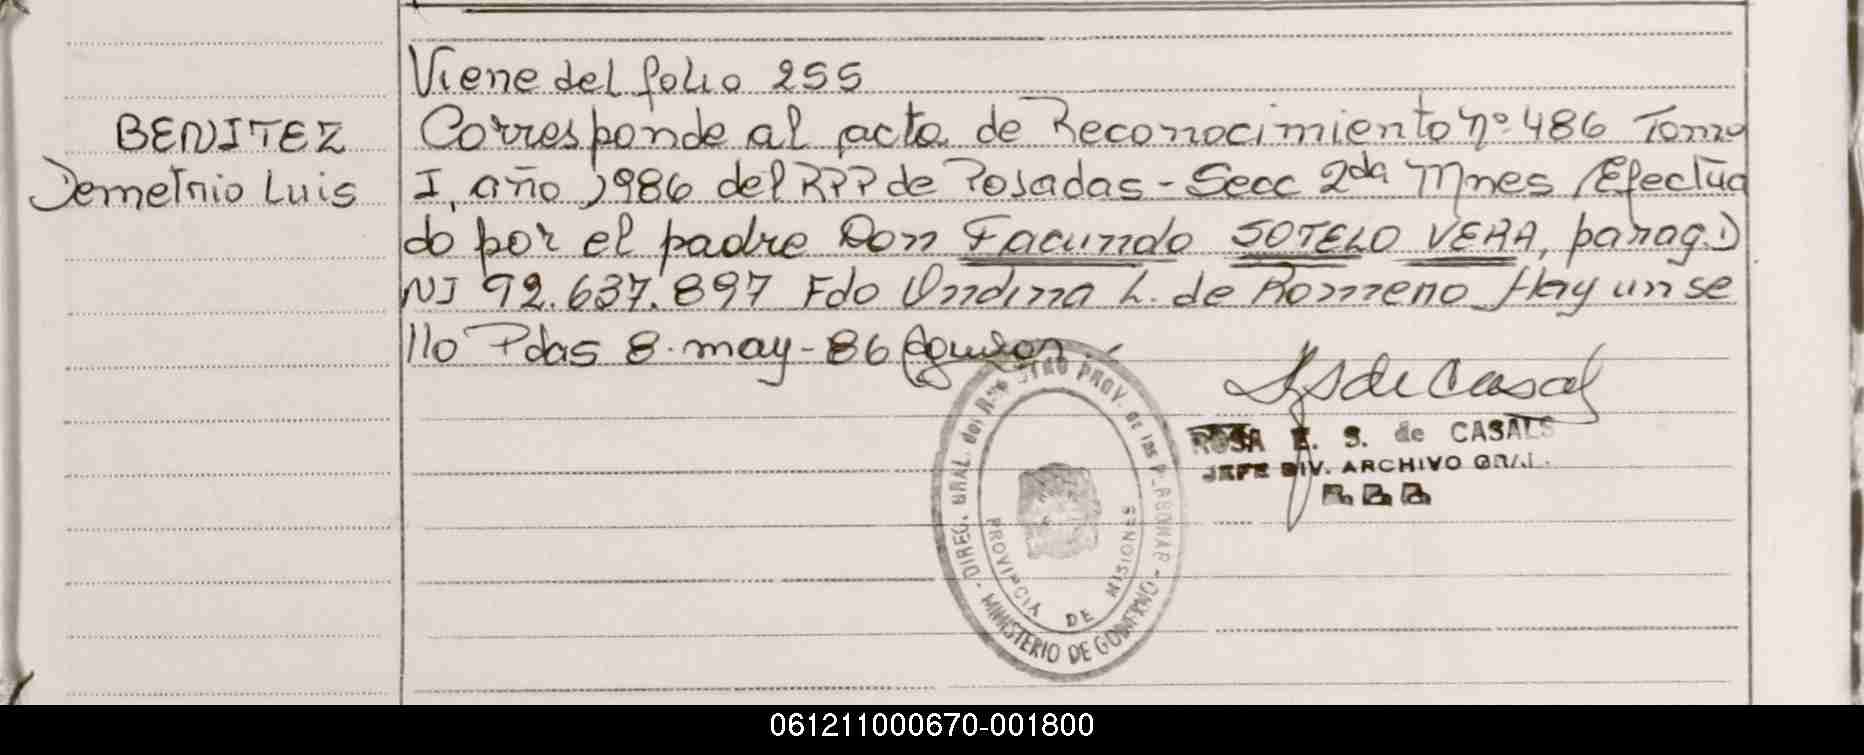 Viene del folio 255
BENITEZ
Demetrio Luis
Corresponde al acta de Reconocimiento nº 486 Tomo
I, año 1986 del RPP de Posadas - Secc 2da Mnes /Efectua
do por el padre Don Facundo SOTELO VERA, parag. D
NI 92.637.897 Fdo Ondina L. de Romero Hay un se
llo Pdas 8. may-86
ROSA E. S. de CASALS
JEFE DIV. ARCHIVO GRAL.
DIREC. GRAL. del REGISTRO PROV. de las PERSONAS - MINISTERIO DE GOBIERNO -
PROVINCIA DE MISIONES
061211000670-001800